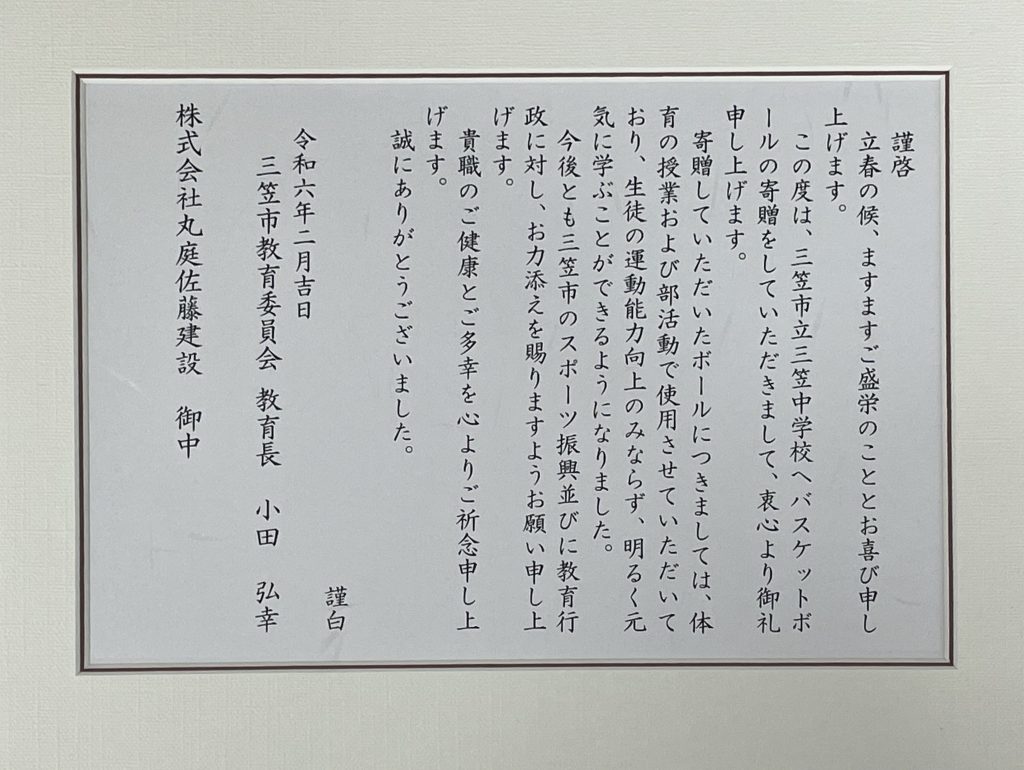 謹啓
立春の候、ますますご盛栄のこととお喜び申し
上げます。
この度は、三笠市立三笠中学校へバスケットボ
ールの寄贈をしていただきまして、衷心より御礼
申し上げます。
寄贈していただいたボールにつきましては、体
育の授業および部活動で使用させていただいて
おり、生徒の運動能力向上のみならず、明るく元
気に学ぶことができるようになりました。
今後とも三笠市のスポーツ振興並びに教育行
政に対し、お力添えを賜りますようお願い申し上
げます。
貴職のご健康とご多幸を心よりご祈念申し上
げます。
誠にありがとうございました。
謹白
令和六年二月吉日
三笠市教育委員会 教育長 小田 弘幸
株式会社丸庭佐藤建設 御中